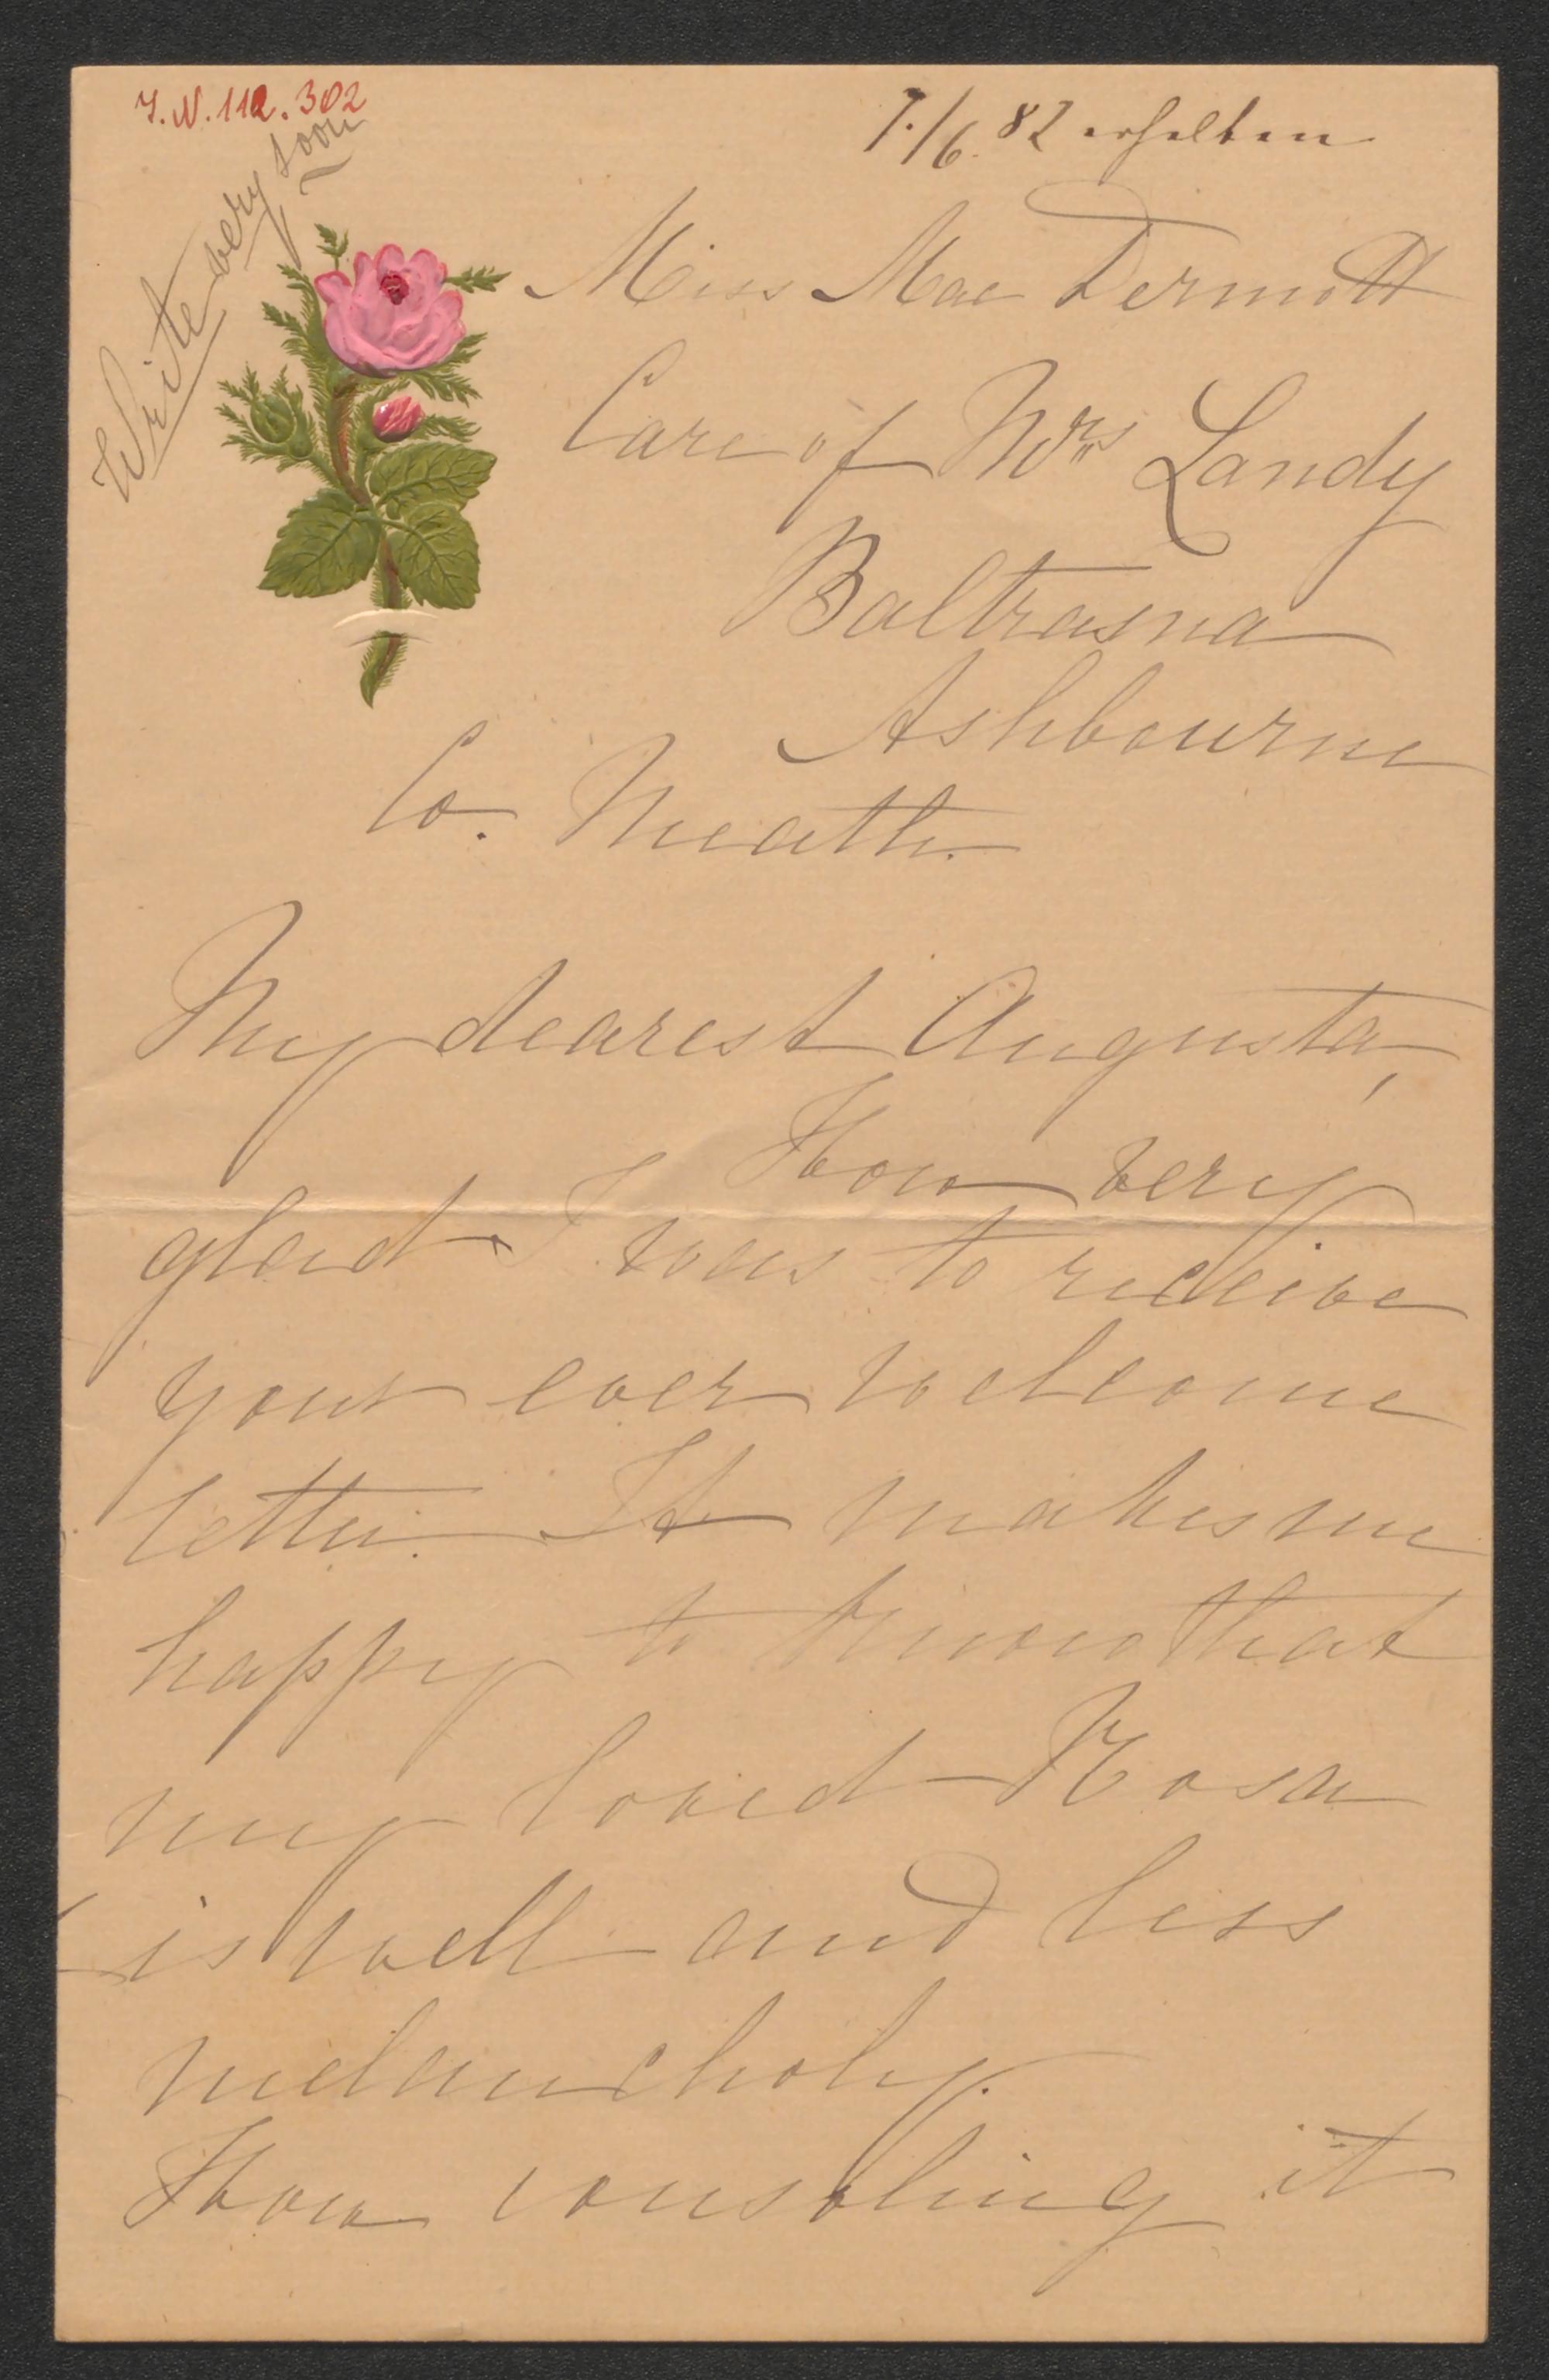 J.N. 112.302
7./6. 82 erhalten
Write very soon
Miss Mac Dermott
Care of Mrs Landy
Baltrasna
Ashbourne
Co. Meath.
My dearest Augusta,
How very
glad I was to receive
your ever welcome
letter. It makes me
happy to know that
my loved Rosa
is well and less
melancholy.
How consoling it